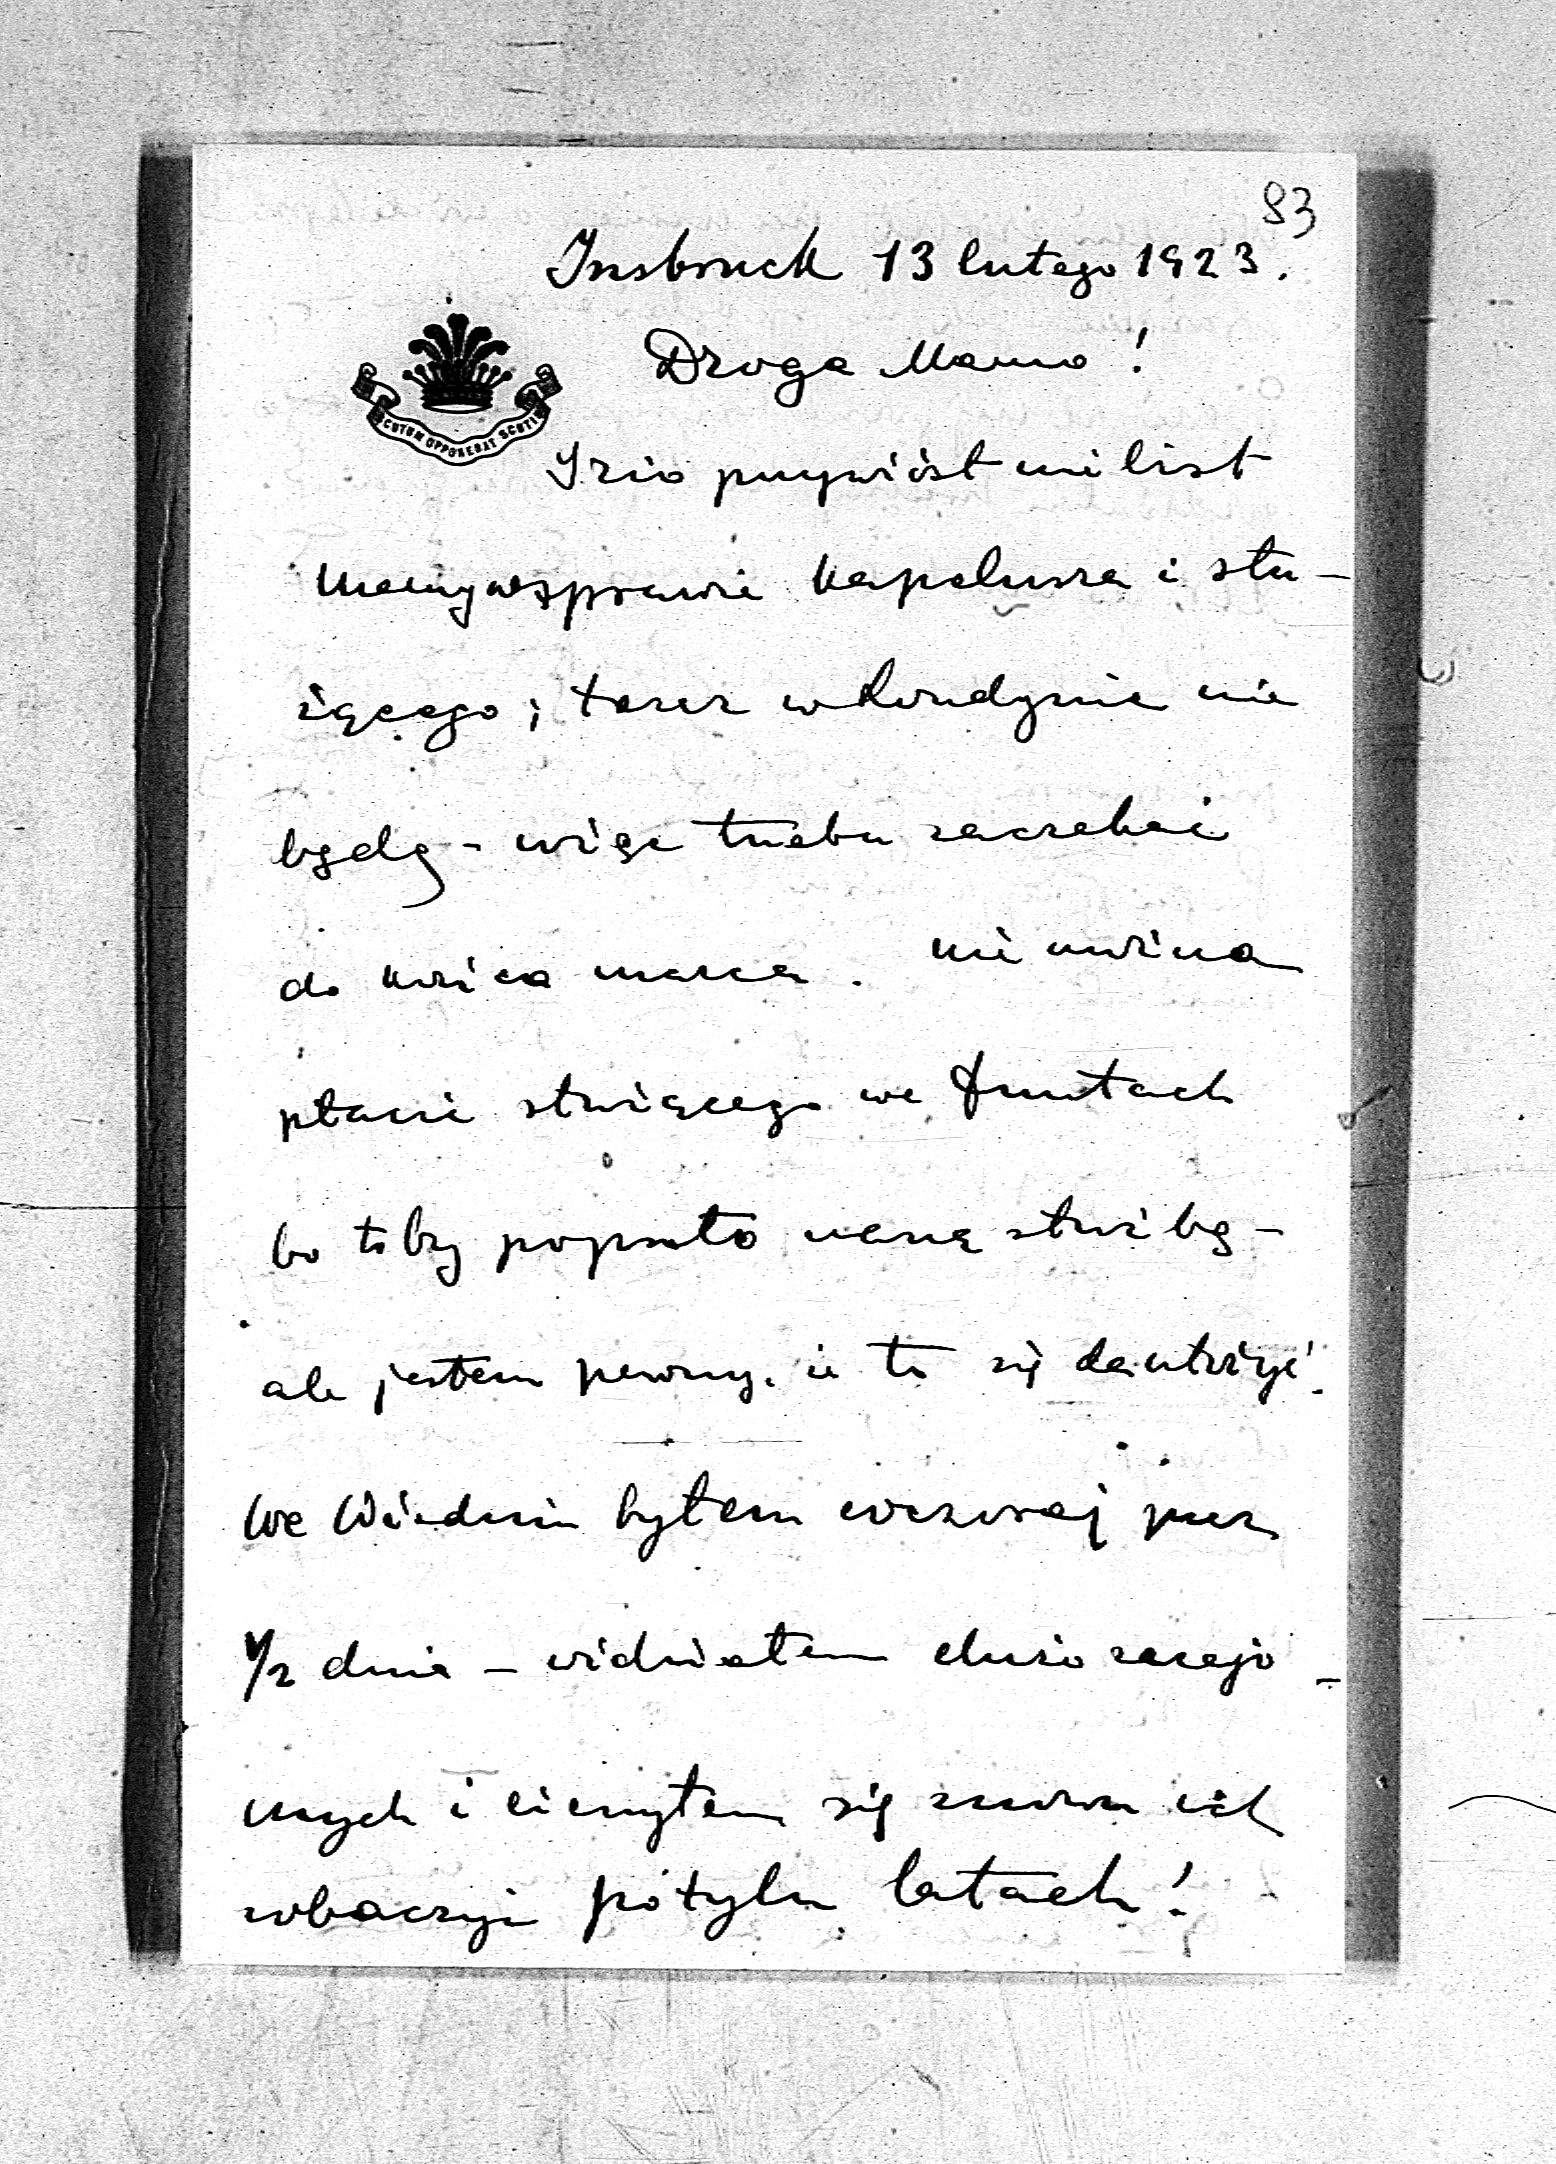 83
Insbruck 13 lutego 1923.
Droga Mamo!
SCUTUM OPPONEBAT SCUTIS
Izio przywiózł mi list
Mamy w sprawie kapelusza i słu-
żącego; teraz w Londynie nie
będę - więc trzeba zaczekać
do końca marca. nie można
płacić służącego we funtach
bo to by popsuło naszą służbę -
ale jestem pewny, że to się da ułożyć.
We Wiedniu byłem wczoraj przez
1/2 dnia - widziałem dużo znajo-
mych i cieszyłem się znowu ich
zobaczyć po tylu latach!